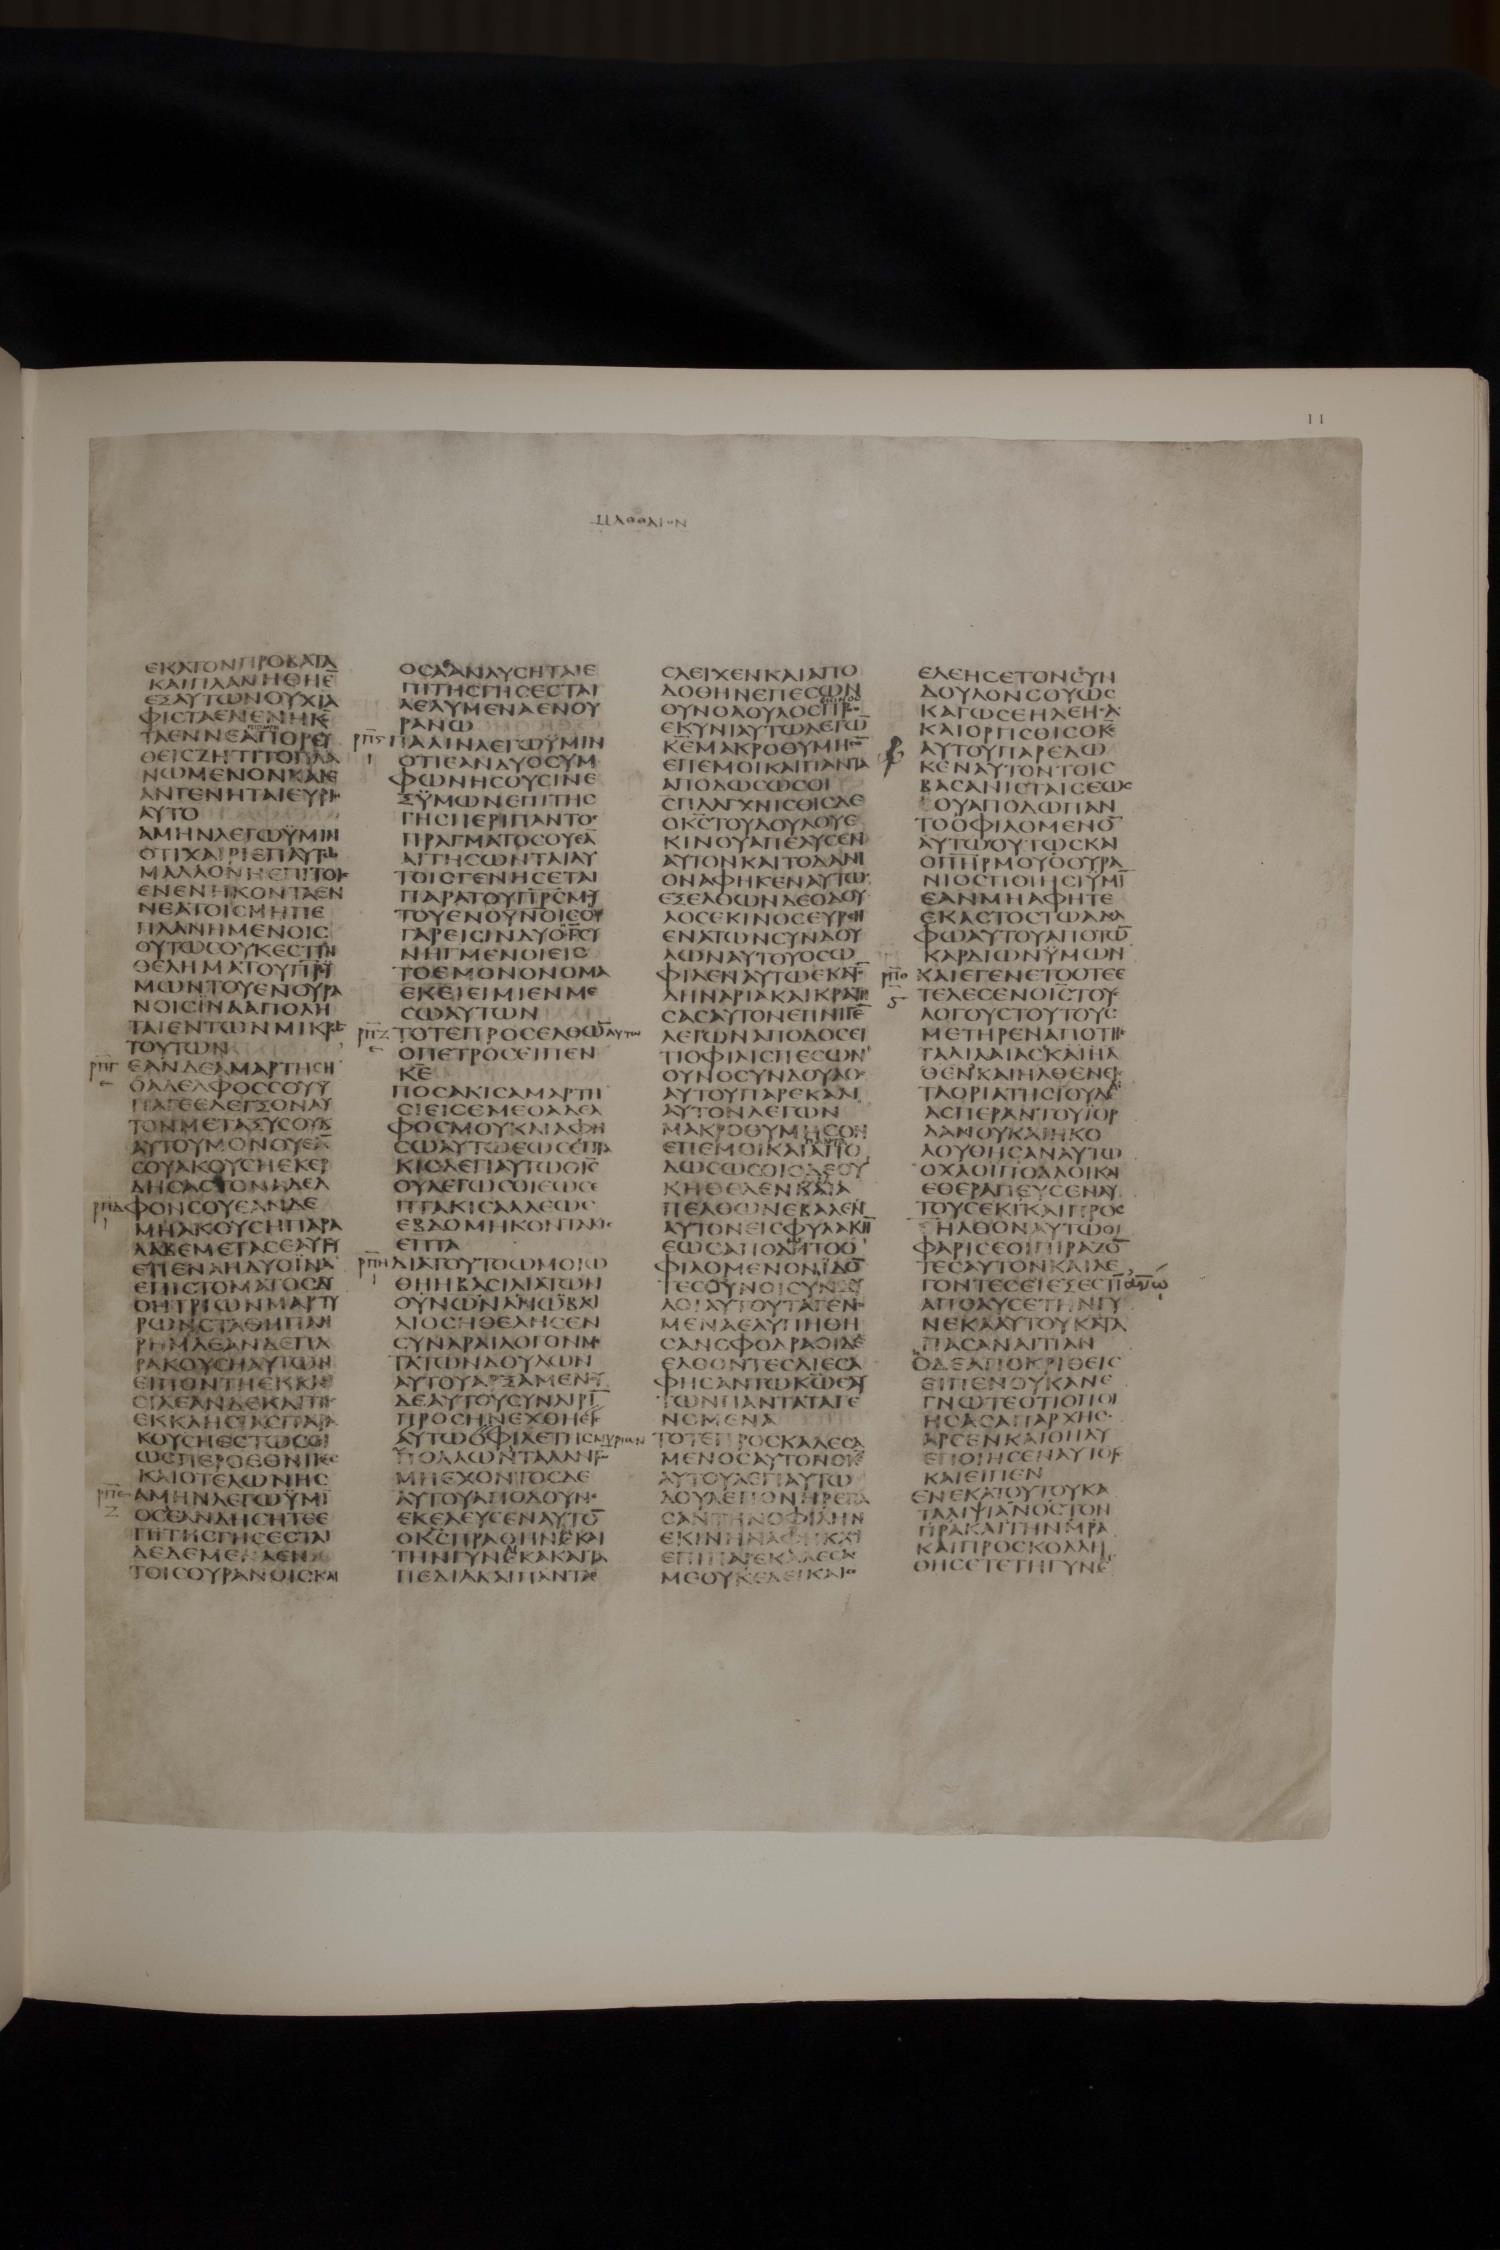 11
ΜΑΘΘΑΙΟΝ
ΕΚΑΤΟΝΠΡΟΒΑΤΑ
ΚΑΙΠΛΑΝΗΘΗΕ̅
ΕΞΑΥΤΩΝΟΥΧΙΑ
ΦΙΣΤΑΕΝΕΝΗΚΕ̅
ΤΑΕΝΝΕΑ ΠΟΡΕΥ
ΘΕΙΣΖΗΤΙΤΟΠΛΑ
ΝΩΜΕΝΟΝΚΑΙΕ
ΑΝΓΕΝΗΤΑΙΕΥΡΙ
ΑΥΤΟ
ΑΜΗΝΛΕΓΩΫΜΙΝ
ΟΤΙΧΑΙΡΙΕΠΑΥΤΩ
ΜΑΛΛΟΝΗΕΠΙΤΟΙΣ
ΕΝΕΝΗΚΟΝΤΑΕΝ
ΝΕΑΤΟΙΣΜΗΠΕ
ΠΛΑΝΗΜΕΝΟΙΣ
ΟΥΤΩΣΟΥΚΕΣΤΙΝ
ΘΕΛΗΜΑΤΟΥΠΡΣΫ
ΜΩΝΤΟΥΕΝΟΥΡΑ
ΝΟΙΣΪΝΑΑΠΟΛΗ
ΤΑΙΕΝΤΩΝΜΙΚΡΩ
ΤΟΥΤΩΝ
ΡΠΓ ΕΑΝΔΕΑΜΑΡΤΗΣΗ
ΟΑΔΕΛΦΟΣΣΟΥΫ
ΠΑΓΕΕΛΕΓΞΟΝΑΥ
ΤΟΝΜΕΤΑΞΥΣΟΥΚ
ΑΥΤΟΥΜΟΝΟΥΕΑ̅
ΣΟΥΑΚΟΥΣΗΕΚΕΡ
ΔΗΣΑΣΤΟΝΑΔΕΛ
ΡΠΔ ΦΟΝΣΟΥΕΑΝΔΕ
ΜΗΑΚΟΥΣΗΠΑΡΑ
ΛΑΒΕΜΕΤΑΣΕΑΥΤΟΥ
ΕΤΙΕΝΑΗΔΥΟΪΝΑ
ΕΠΙΣΤΟΜΑΤΟΣΔΥ
ΟΗΤΡΙΩΝΜΑΡΤΥ
ΡΩΝΣΤΑΘΗΠΑΝ
ΡΗΜΑΕΑΝΔΕΠΑ
ΡΑΚΟΥΣΗΑΥΤΩΝ
ΕΙΠΟΝΤΗΕΚΚΛΗ
ΣΙΑΕΑΝΔΕΚΑΙΤΗΣ
ΕΚΚΛΗΣΙΑΣΠΑΡΑ
ΚΟΥΣΗΕΣΤΩΣΟΙ
ΩΣΠΕΡΟΕΘΝΙΚΟΣ
ΚΑΙΟΤΕΛΩΝΗΣ
ΡΠΕ ΑΜΗΝΛΕΓΩΫΜΙ̅
ΟΣΕΑΝΔΗΣΗΤΕΕ
ΠΙΤΗΣΓΗΣΕΣΤΑΙ
ΔΕΔΕΜΕΝΑΕΝ
ΤΟΙΣΟΥΡΑΝΟΙΣΚΑΙ
ΟΣΑΑΝΛΥΣΗΤΑΙΕ
ΠΙΤΗΣΓΗΣΕΣΤΑΙ
ΛΕΛΥΜΕΝΑΕΝΟΥ
ΡΑΝΩ
ΡΠϚ ΠΑΛΙΝΛΕΓΩΫΜΙΝ
ΟΤΙΕΑΝΔΥΟΣΥΜ
ΦΩΝΗΣΟΥΣΙΝΕ
ΞΫΜΩΝΕΠΙΤΗΣ
ΓΗΣΠΕΡΙΠΑΝΤΟΣ
ΠΡΑΓΜΑΤΟΣΟΥΕΑ̅
ΑΙΤΗΣΩΝΤΑΙΑΥ
ΤΟΙΣΓΕΝΗΣΕΤΑΙ
ΠΑΡΑΤΟΥΠΡΣΜΟΥ
ΤΟΥΕΝΟΥΝΟΙΣΟΥ
ΓΑΡΕΙΣΙΝΔΥΟΗΤΡΙΣ
ΝΗΓΜΕΝΟΙΕΙΣ
ΤΟΕΜΟΝΟΝΟΜΑ
ΕΚΕΙΕΙΜΙΕΝΜΕ
ΣΩΑΥΤΩΝ
ΡΠΖ ΤΟΤΕΠΡΟΣΕΛΘΩ̅ΑΥΤΩ
ΟΠΕΤΡΟΣΕΙΠΕΝ
ΚΕ̅
ΠΟΣΑΚΙΣΑΜΑΡΤΗ
ΣΙΕΙΣΕΜΕΟΑΔΕΛ
ΦΟΣΜΟΥΚΑΙΑΦΗ
ΣΩΑΥΤΩΕΩΣΕΠΤΑ
ΚΙΣΛΕΓΙΑΥΤΩΟΙΣ̅
ΟΥΛΕΓΩΣΟΙΕΩΣΕ
ΠΤΑΚΙΣΑΛΛΕΩΣ
ΕΒΔΟΜΗΚΟΝΤΑΚΙΣ
ΕΠΤΑ
ΡΠΗ ΔΙΑΤΟΥΤΟΩΜΟΙΩ
ΘΗΗΒΑΣΙΛΙΑΤΩΝ
ΟΥΝΩΝΑΝΩΒΑΣΙ
ΛΙΟΣΗΘΕΛΗΣΕΝ
ΣΥΝΑΡΑΙΛΟΓΟΝΜΕ
ΤΑΤΩΝΔΟΥΛΩΝ
ΑΥΤΟΥΑΡΞΑΜΕΝΟΥ
ΔΕΑΥΤΟΥΣΥΝΑΙΡΙ̅
ΠΡΟΣΗΝΕΧΘΗΕΙΣ
ΑΥΤΩΟΦΙΛΕΤΗΣΜΥΡΙΩΝ
ΠΟΛΛΩΝΤΑΛΑΝΤΩ
ΜΗΕΧΟΝΤΟΣΔΕ
ΑΥΤΟΥΑΠΟΔΟΥΝΑΙ
ΕΚΕΛΕΥΣΕΝΑΥΤΟ̅
ΟΚΣΠΡΑΘΗΝΕΚΑΙ
ΤΗΝΓΥΝΕΚΑΚΑΙΤΑ
ΠΕΔΙΑΚΑΙΠΑΝΤΑΟ
ΣΑΕΙΧΕΝΚΑΙΑΠΟ
ΔΟΘΗΝΕΠΕΣΩΝ
ΟΥΝΟΔΟΥΛΟΣΠΡΟΣ
ΕΚΥΝΙΑΥΤΩΛΕΓΩ̅
ΚΕΜΑΚΡΟΘΥΜΗΣΟΝ
ΕΠΕΜΟΙΚΑΙΠΑΝΤΑ
ΑΠΟΔΩΣΩΣΟΙ
ΣΠΛΑΓΧΝΙΣΘΙΣΔΕ
ΟΚΣΤΟΥΔΟΥΛΟΥΕ
ΚΙΝΟΥΑΠΕΛΥΣΕΝ
ΑΥΤΟΝΚΑΙΤΟΔΑΝΙ
ΟΝΑΦΗΚΕΝΑΥΤΩ
ΕΞΕΛΘΩΝΔΕΟΔΟΥ
ΛΟΣΕΚΙΝΟΣΕΥΡΕΝ
ΕΝΑΤΩΝΣΥΝΔΟΥ
ΛΩΝΑΥΤΟΥΟΣΩ
ΦΙΛΕΝΑΥΤΩΕΚΑΤΟ
ΔΗΝΑΡΙΑΚΑΙΚΡΑΤΗ
ΣΑΣΑΥΤΟΝΕΠΝΙΓΕ
ΛΕΓΩΝΑΠΟΔΟΣΕΙ
ΤΙΟΦΙΛΙΣΠΕΣΩΝ
ΟΥΝΟΣΥΝΔΟΥΛΟΣ
ΑΥΤΟΥΠΑΡΕΚΑΛΙ
ΑΥΤΟΝΛΕΓΩΝ
ΜΑΚΡΟΘΥΜΗΣΟΝ
ΕΠΕΜΟΙΚΑΙΑΠΟ
ΔΩΣΩΣΟΙΟΔΕΟΥ
ΚΗΘΕΛΕΝΚΑΙΑ
ΠΕΛΘΩΝΕΒΑΛΕΝ
ΑΥΤΟΝΕΙΣΦΥΛΑΚΗ̅
ΕΩΣΑΠΟΔΩΤΟΟ
ΦΙΛΟΜΕΝΟΝΪΔΟ̅
ΤΕΣΟΥΝΟΙΣΥΝΔΟΥ
ΛΟΙΑΥΤΟΥΤΑΓΕΝΟ
ΜΕΝΑΕΛΥΠΗΘΗ
ΣΑΝΣΦΟΔΡΑΟΙΔΕ
ΕΛΘΟΝΤΕΣΔΙΕΣΑ
ΦΗΣΑΝΤΩΚΩΕΑΥ
ΤΩΝΠΑΝΤΑΤΑΓΕ
ΝΟΜΕΝΑ
ΤΟΤΕΠΡΟΣΚΑΛΕΣΑ
ΜΕΝΟΣΑΥΤΟΝΟΚΣ
ΑΥΤΟΥΛΕΓΙΑΥΤΩ
ΔΟΥΛΕΠΟΝΗΡΕΠΑ
ΣΑΝΤΗΝΟΦΙΛΗΝ
ΕΚΙΝΗΝΑΦΗΚΑΣΟΙ
ΕΠΙΠΑΡΕΚΑΛΕΣΑΣ
ΜΕΟΥΚΕΔΕΙΚΑΙΣΕ
ΕΛΕΗΣΕΤΟΝΣΥΝ
ΔΟΥΛΟΝΣΟΥΩΣ
ΚΑΓΩΣΕΗΛΕΗΣΑ
ΚΑΙΟΡΓΙΣΘΙΣΟΚΣ̅
ΑΥΤΟΥΠΑΡΕΔΩ
ΚΕΝΑΥΤΟΝΤΟΙΣ
ΒΑΣΑΝΙΣΤΑΙΣΕΩΣ
ΟΥΑΠΟΔΩΠΑΝ
ΤΟΟΦΙΛΟΜΕΝΟ̅
ΑΥΤΩΟΥΤΩΣΚΑΙ
ΟΠΗΡΜΟΥΟΟΥΡΑ
ΝΙΟΣΠΟΙΗΣΙΫΜΙ̅
ΕΑΝΜΗΑΦΗΤΕ
ΕΚΑΣΤΟΣΤΩΑΔΕΛ
ΦΩΑΥΤΟΥΑΠΟΤΩ̅
ΚΑΡΔΙΩΝΫΜΩΝ
ΡΠΘ ΚΑΙΕΓΕΝΕΤΟΟΤΕΕ
ΤΕΛΕΣΕΝΟΙΣΤΟΥΣ
ΛΟΓΟΥΣΤΟΥΤΟΥΣ
ΜΕΤΗΡΕΝΑΠΟΤΗΣ
ΓΑΛΙΛΑΙΑΣΚΑΙΗΛ
ΘΕΝΚΑΙΗΛΘΕΝΕΙΣ
ΤΑΟΡΙΑΤΗΣΙΟΥΔΑΙ
ΑΣΠΕΡΑΝΤΟΥΙΟΡ
ΔΑΝΟΥΚΑΙΗΚΟ
ΛΟΥΘΗΣΑΝΑΥΤΩ
ΟΧΛΟΙΠΟΛΛΟΙΚΑΙ
ΕΘΕΡΑΠΕΥΣΕΝΑΥ
ΤΟΥΣΕΚΙΚΑΙΠΡΟΣ
ΗΛΘΟΝΑΥΤΩΟΙ
ΦΑΡΙΣΕΟΙΠΙΡΑΖΟ̅
ΤΕΣΑΥΤΟΝΚΑΙΛΕ
ΓΟΝΤΕΣΕΙΕΞΕΣΤΙ
ΑΠΟΛΥΣΕΤΗΝΓΥ
ΝΕΚΑΑΥΤΟΥΚΑΤΑ
ΠΑΣΑΝΑΙΤΙΑΝ
ΟΔΕΑΠΟΚΡΙΘΕΙΣ
ΕΙΠΕΝΟΥΚΑΝΕ
ΓΝΩΤΕΟΤΙΟΠΟΙ
ΗΣΑΣΑΠΑΡΧΗΣ
ΑΡΣΕΝΚΑΙΘΗΛΥ
ΕΠΟΙΗΣΕΝΑΥΤΟΥΣ
ΚΑΙΕΙΠΕΝ
ΕΝΕΚΑΤΟΥΤΟΥΚΑ
ΤΑΛΙΨΙΑΝΟΣΤΟΝ
ΠΡΑΚΑΙΤΗΝΜΡΑ
ΚΑΙΠΡΟΣΚΟΛΛΗ
ΘΗΣΕΤΕΤΗΓΥΝΕ